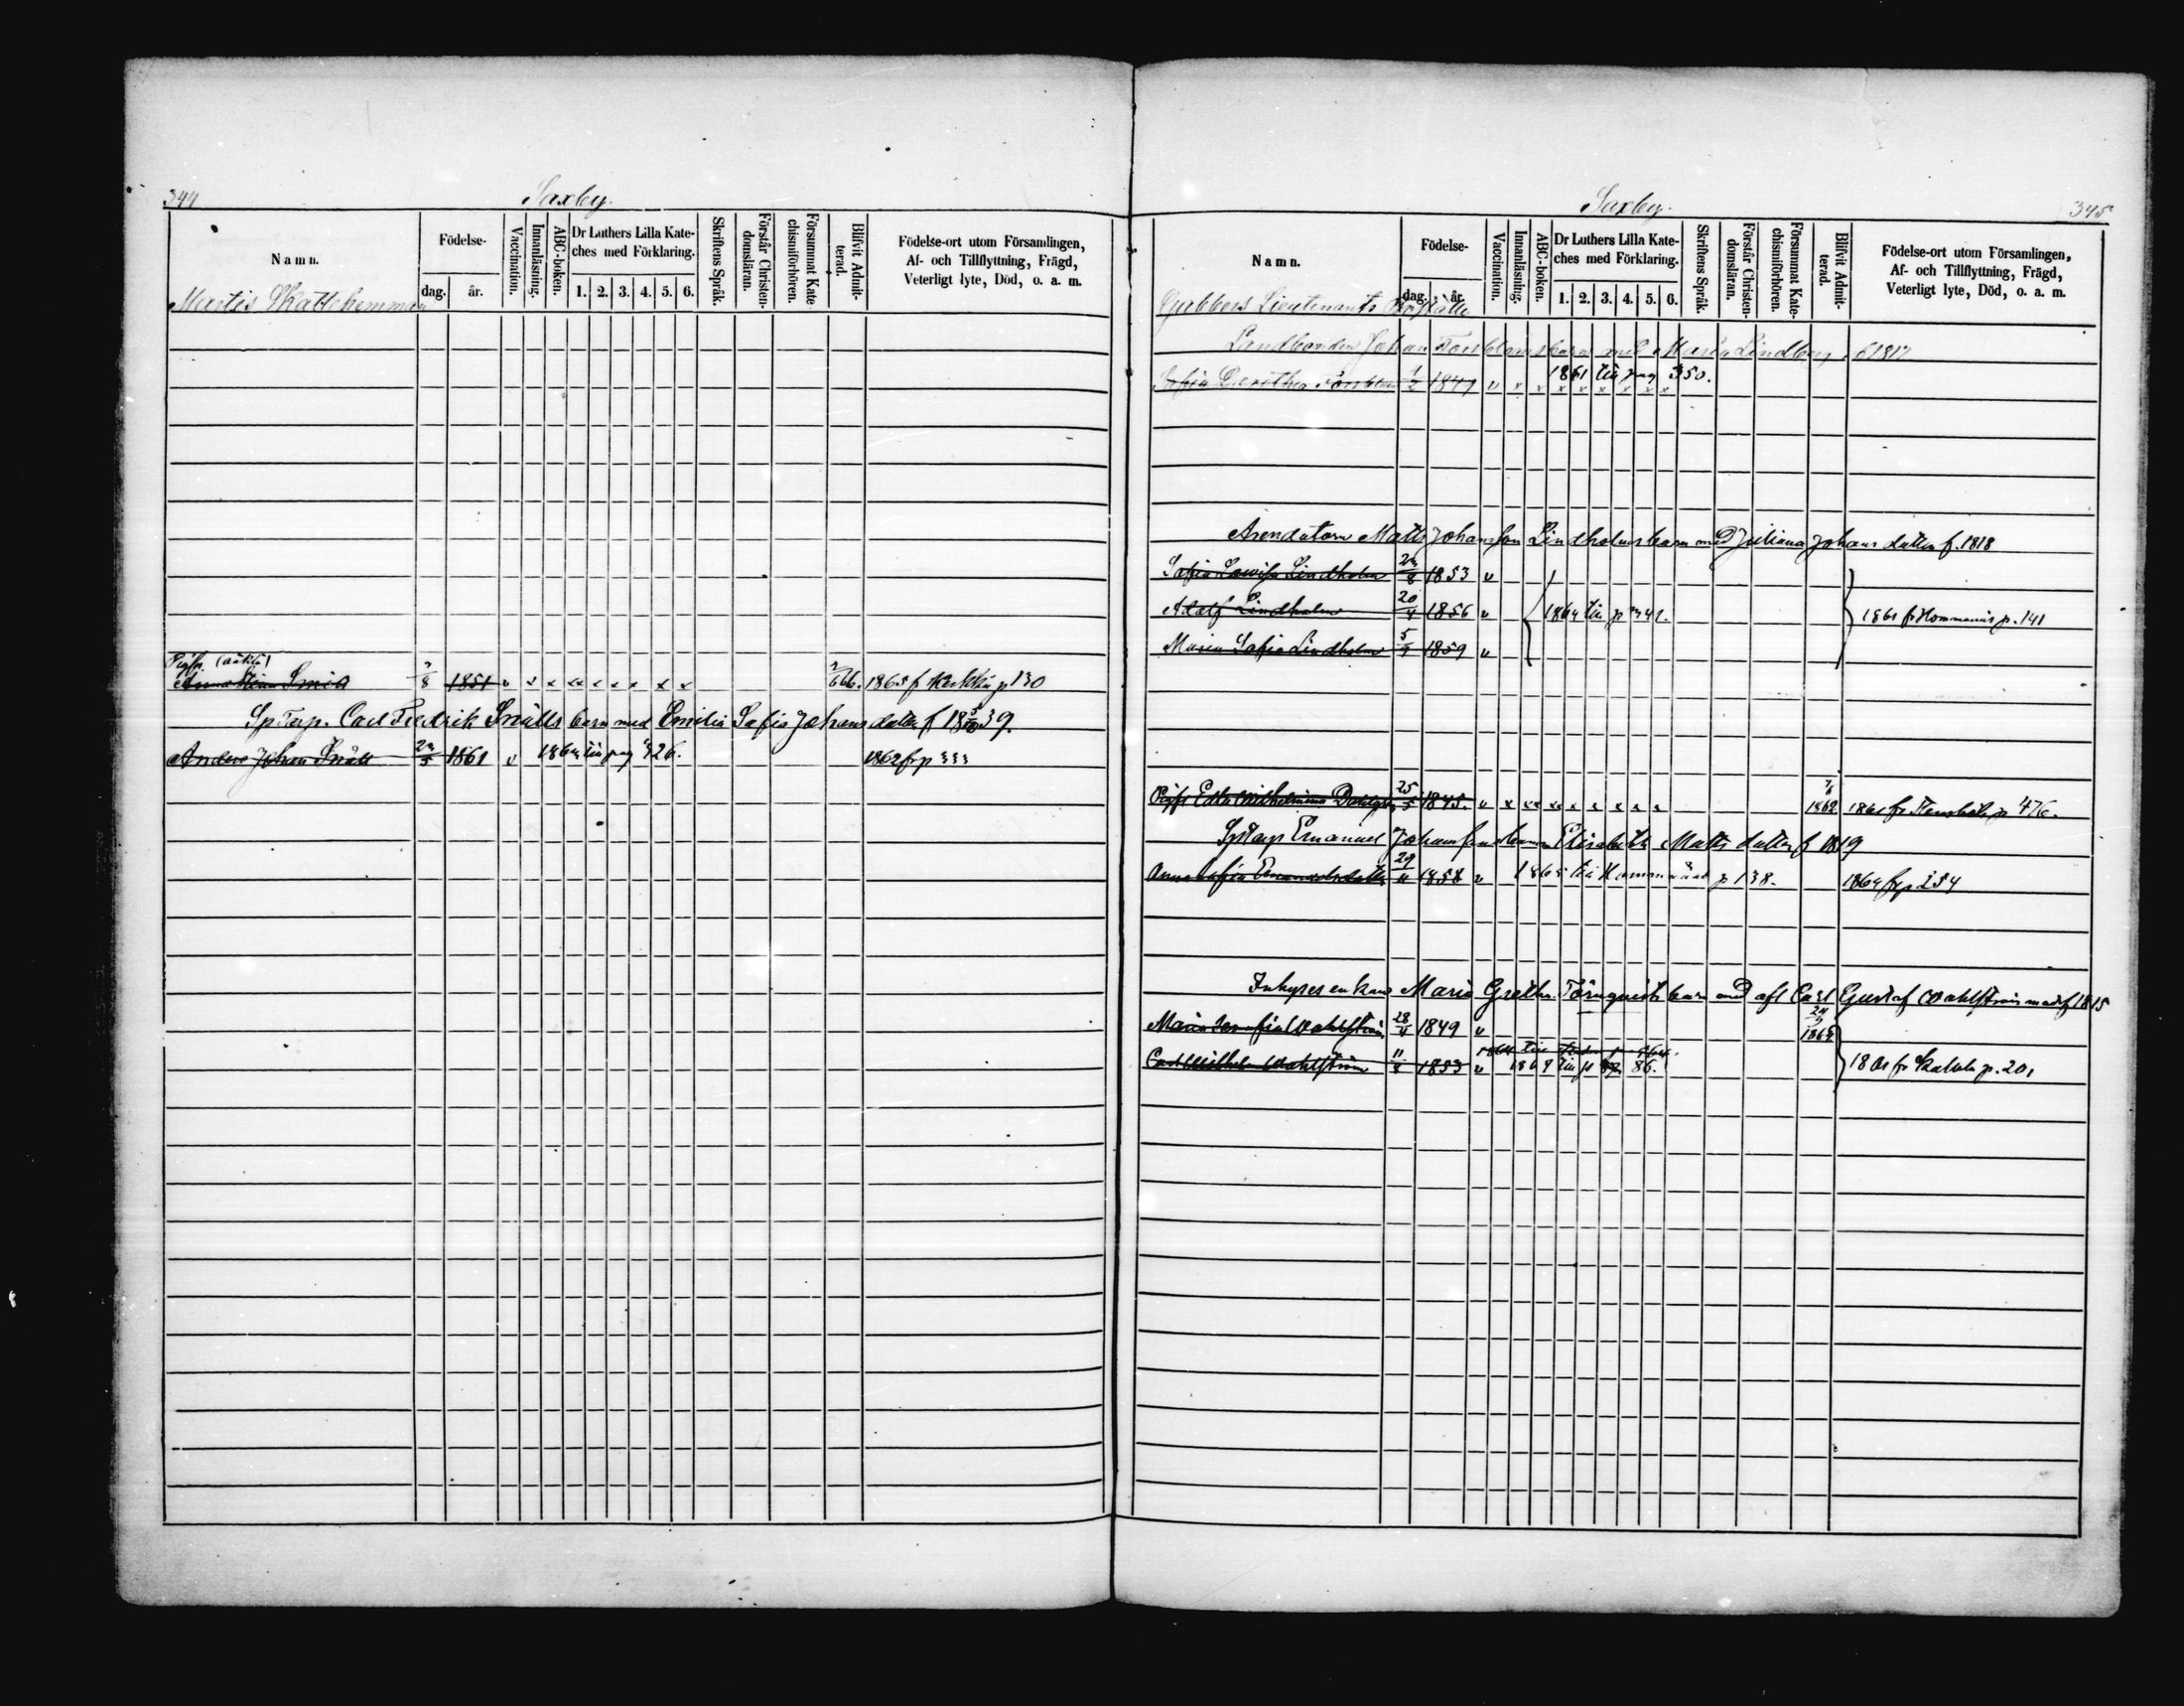 344
Saxby.
Namn.
Födelse-
dag.
år.
Vaccination.
Innanläsning.
ABC-boken.
Dr Luthers Lilla Kate-
ches med Förklaring.
1. 2. 3. 4. 5. 6.
Skriftens Språk.
Förstår Christen-
domsläran.
Försummat Kate-
chismiförhören.
Blifvit Admit-
terad.
Födelse-ort utom Församlingen,
Af- och Tillflyttning, Frägd,
Veterligt lyte, Död, o. a. m.
Martis Skattehemman
Pigfr.
Anna Stina 1851 v x x x x x x x x x 1865 f p 130
Sp Torp. Carl Fredrik Snälls barn med Emilia Sofia Johans dotter f 18 39.
Anders Johan Snäll 1861 v 1864 till pag 326. 1862 fr p 333
Saxby.
345
Namn.
Födelse-
dag.
år.
Vaccination.
Innanläsning.
ABC-boken.
Dr Luthers Lilla Kate-
ches med Förklaring.
1. 2. 3. 4. 5. 6.
Skriftens Språk.
Förstår Christen-
domsläran.
Försummat Kate-
chismiförhören.
Blifvit Admit-
terad.
Födelse-ort utom Församlingen,
Af- och Tillflyttning, Frägd,
Veterligt lyte, Död, o. a. m.
Gubbers Lieutenants Boställe
Landbonden Johan barn med Maria Lindberg f 1817
1861 till pag 350.
Sofia Dorothea 1/2 1847 v x x x x x x x x x
Arendatorn Matts Johansson Lindholms barn med Juliana Johans dotter f. 1818
Sofia Lovisa Lindholm 1853 v
Adolf Lindholm 20/4 1856 v 1864 till p 341. 1861 fr Hommanäs p. 141
Maria Sofia Lindholm 1859 v
Pigfr Edla Wilhelmina 25/5 1845. v x x x x x x x x 1862 1861 fr p 476.
Sp Torp Emanuel Johansson barn Elisabeth Matts dotter f 1819
Anna Sofia Emanuelsdotter 29/11 1858 v 1865 till Hommanäs p 138. 1864 fr p 254
Inhyses enkan Maria Gretha Törnquists barn med afl Carl Gustaf Wahlström mor f 1815
Maria Wahlström 28/4 1849 v
Carl Wilhelm Wahlström 11/8 1853 v 1869 till 86. 1861 fr p. 201